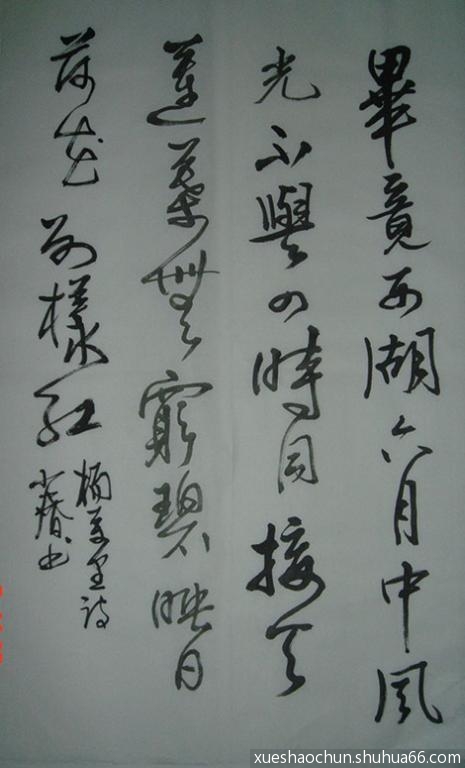 畢竟西湖六月中風
光不與四時同接天
蓮葉無窮碧映日
荷花別樣紅
楊萬里詩
书
xueshaochun.shuhua66.com